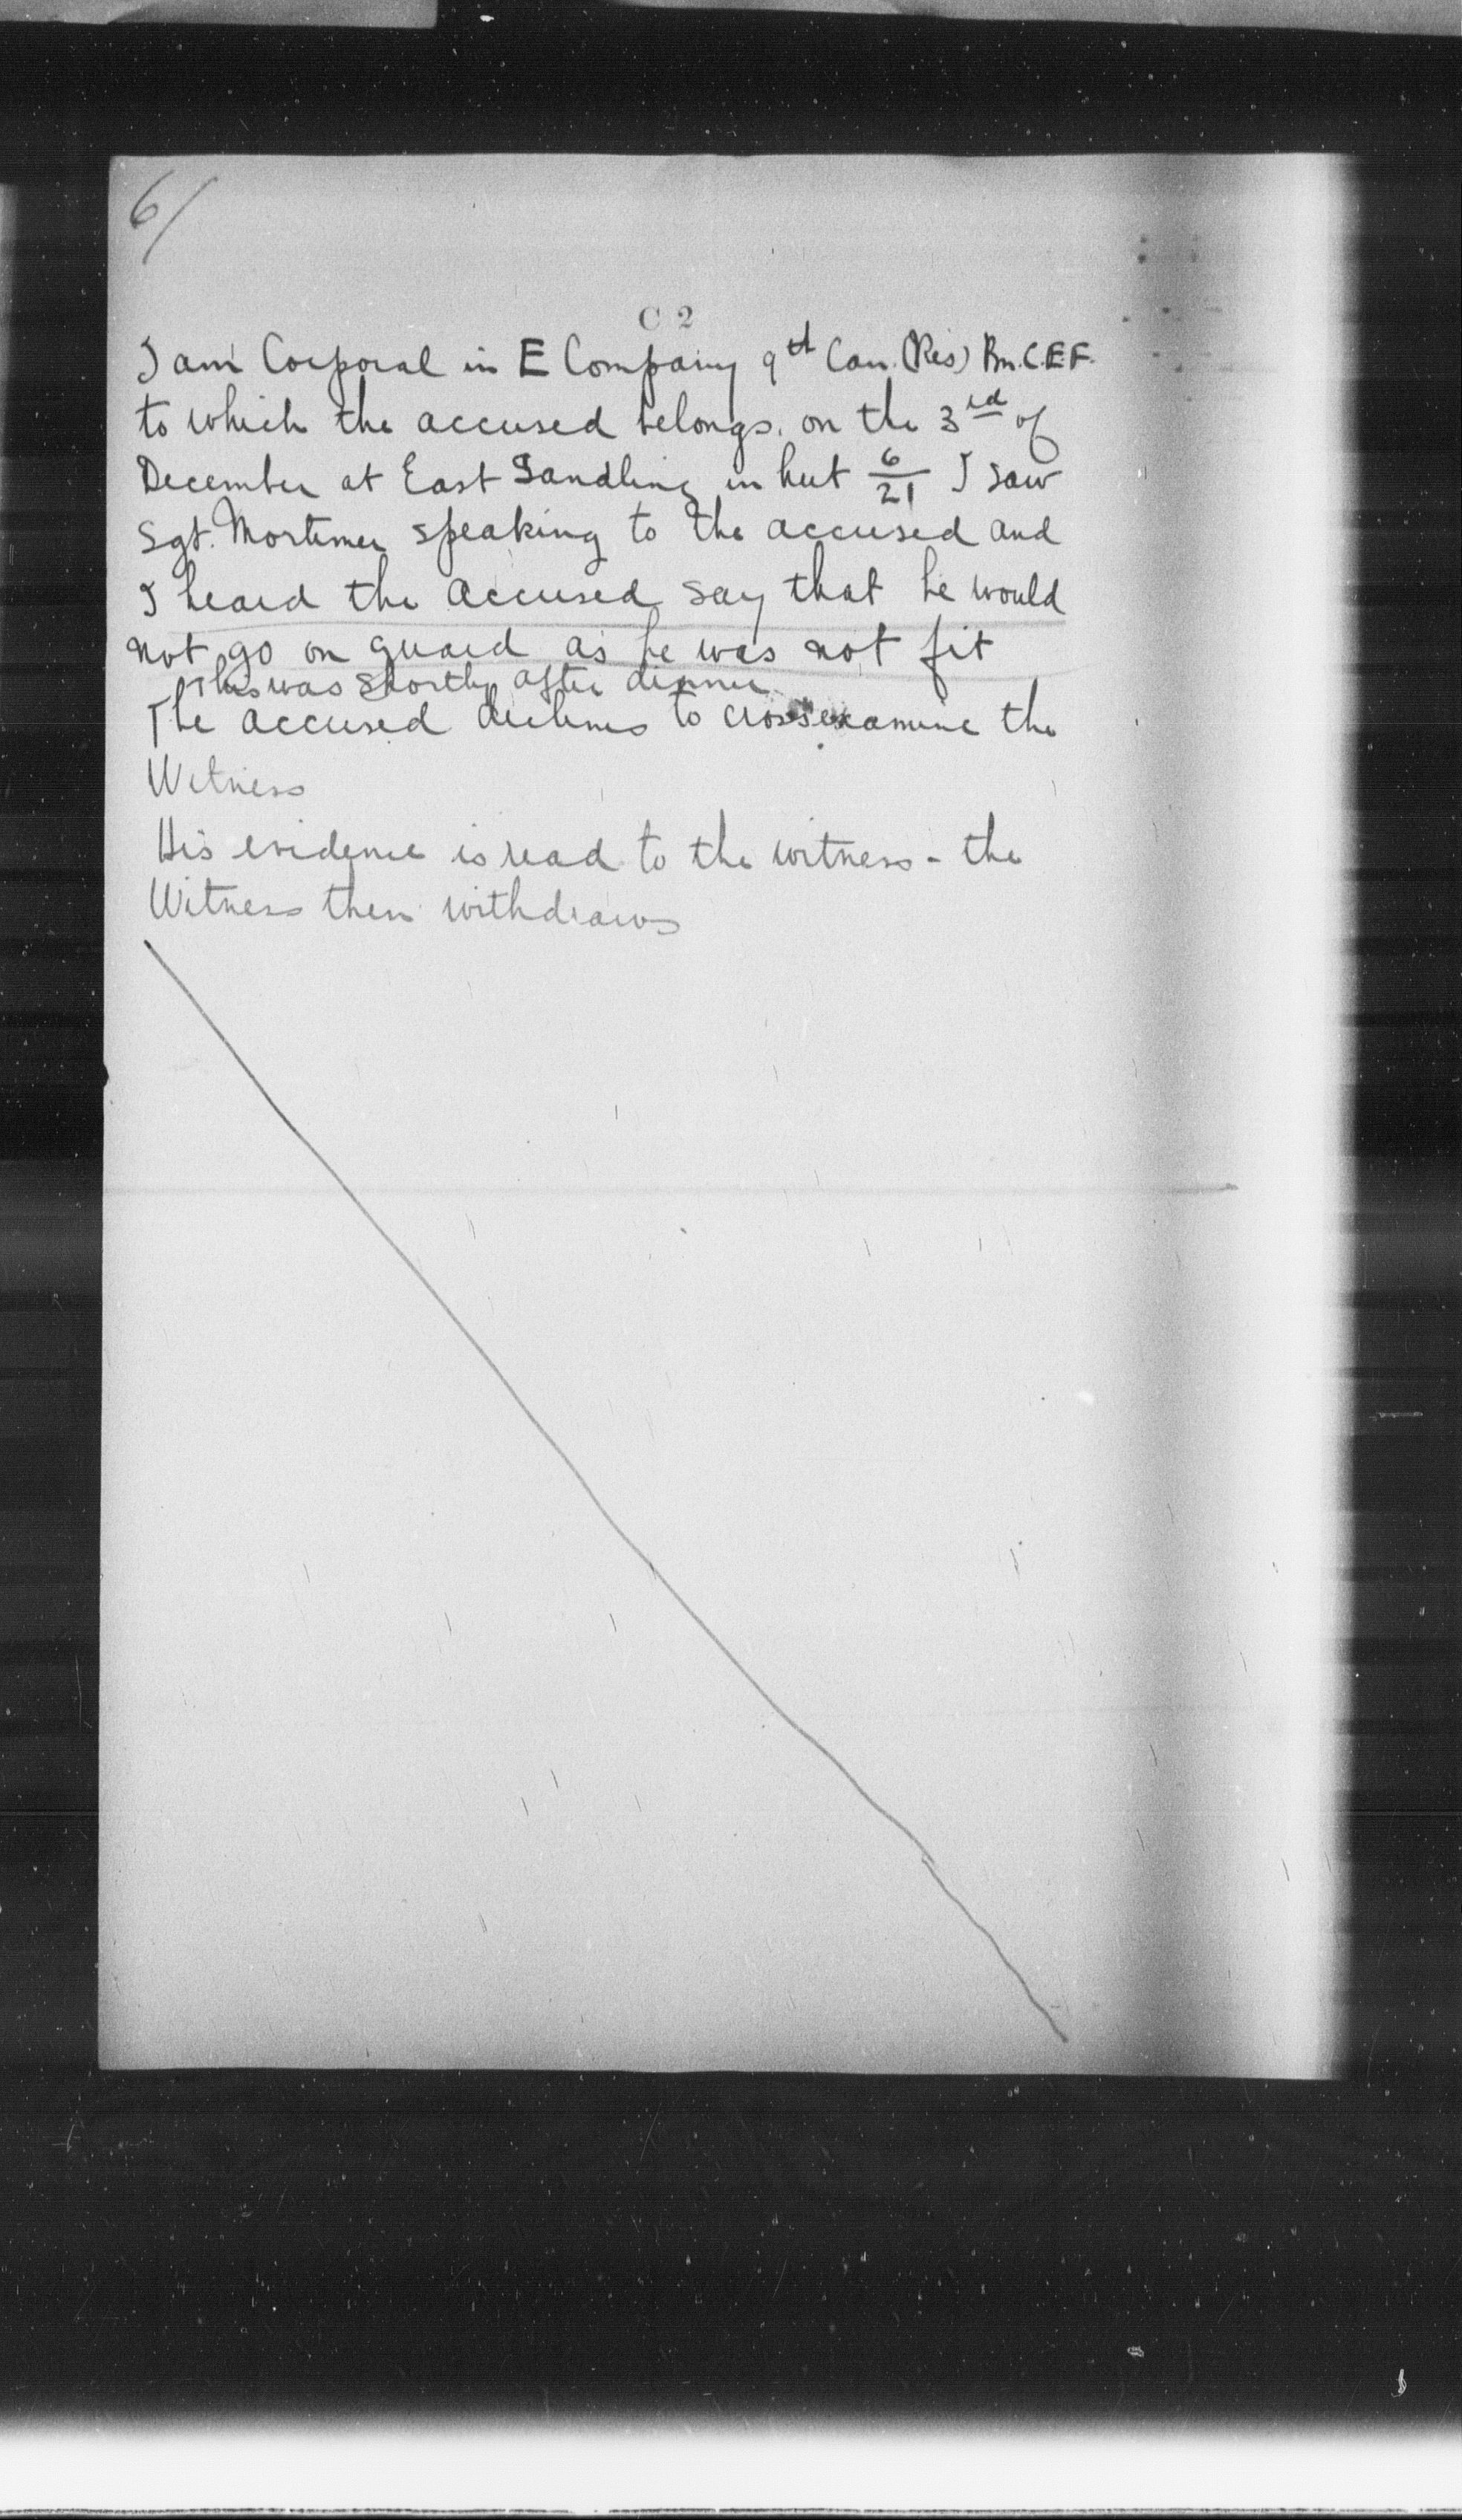 6/
C 2
I am Corporal in E Company 9th Can. (Res) Bn. C.E.F.
to which the accused belongs. on the 3rd of
December at East Sandling in hut 6/21 I saw
Sgt. Mortimer speaking to the accused and
I heard the accused say that he would
not go on guard as he was not fit
This was shortly after dinner.
The accused declines to cross examine the
Witness
His evidence is read to the witness - the
Witness then withdraws